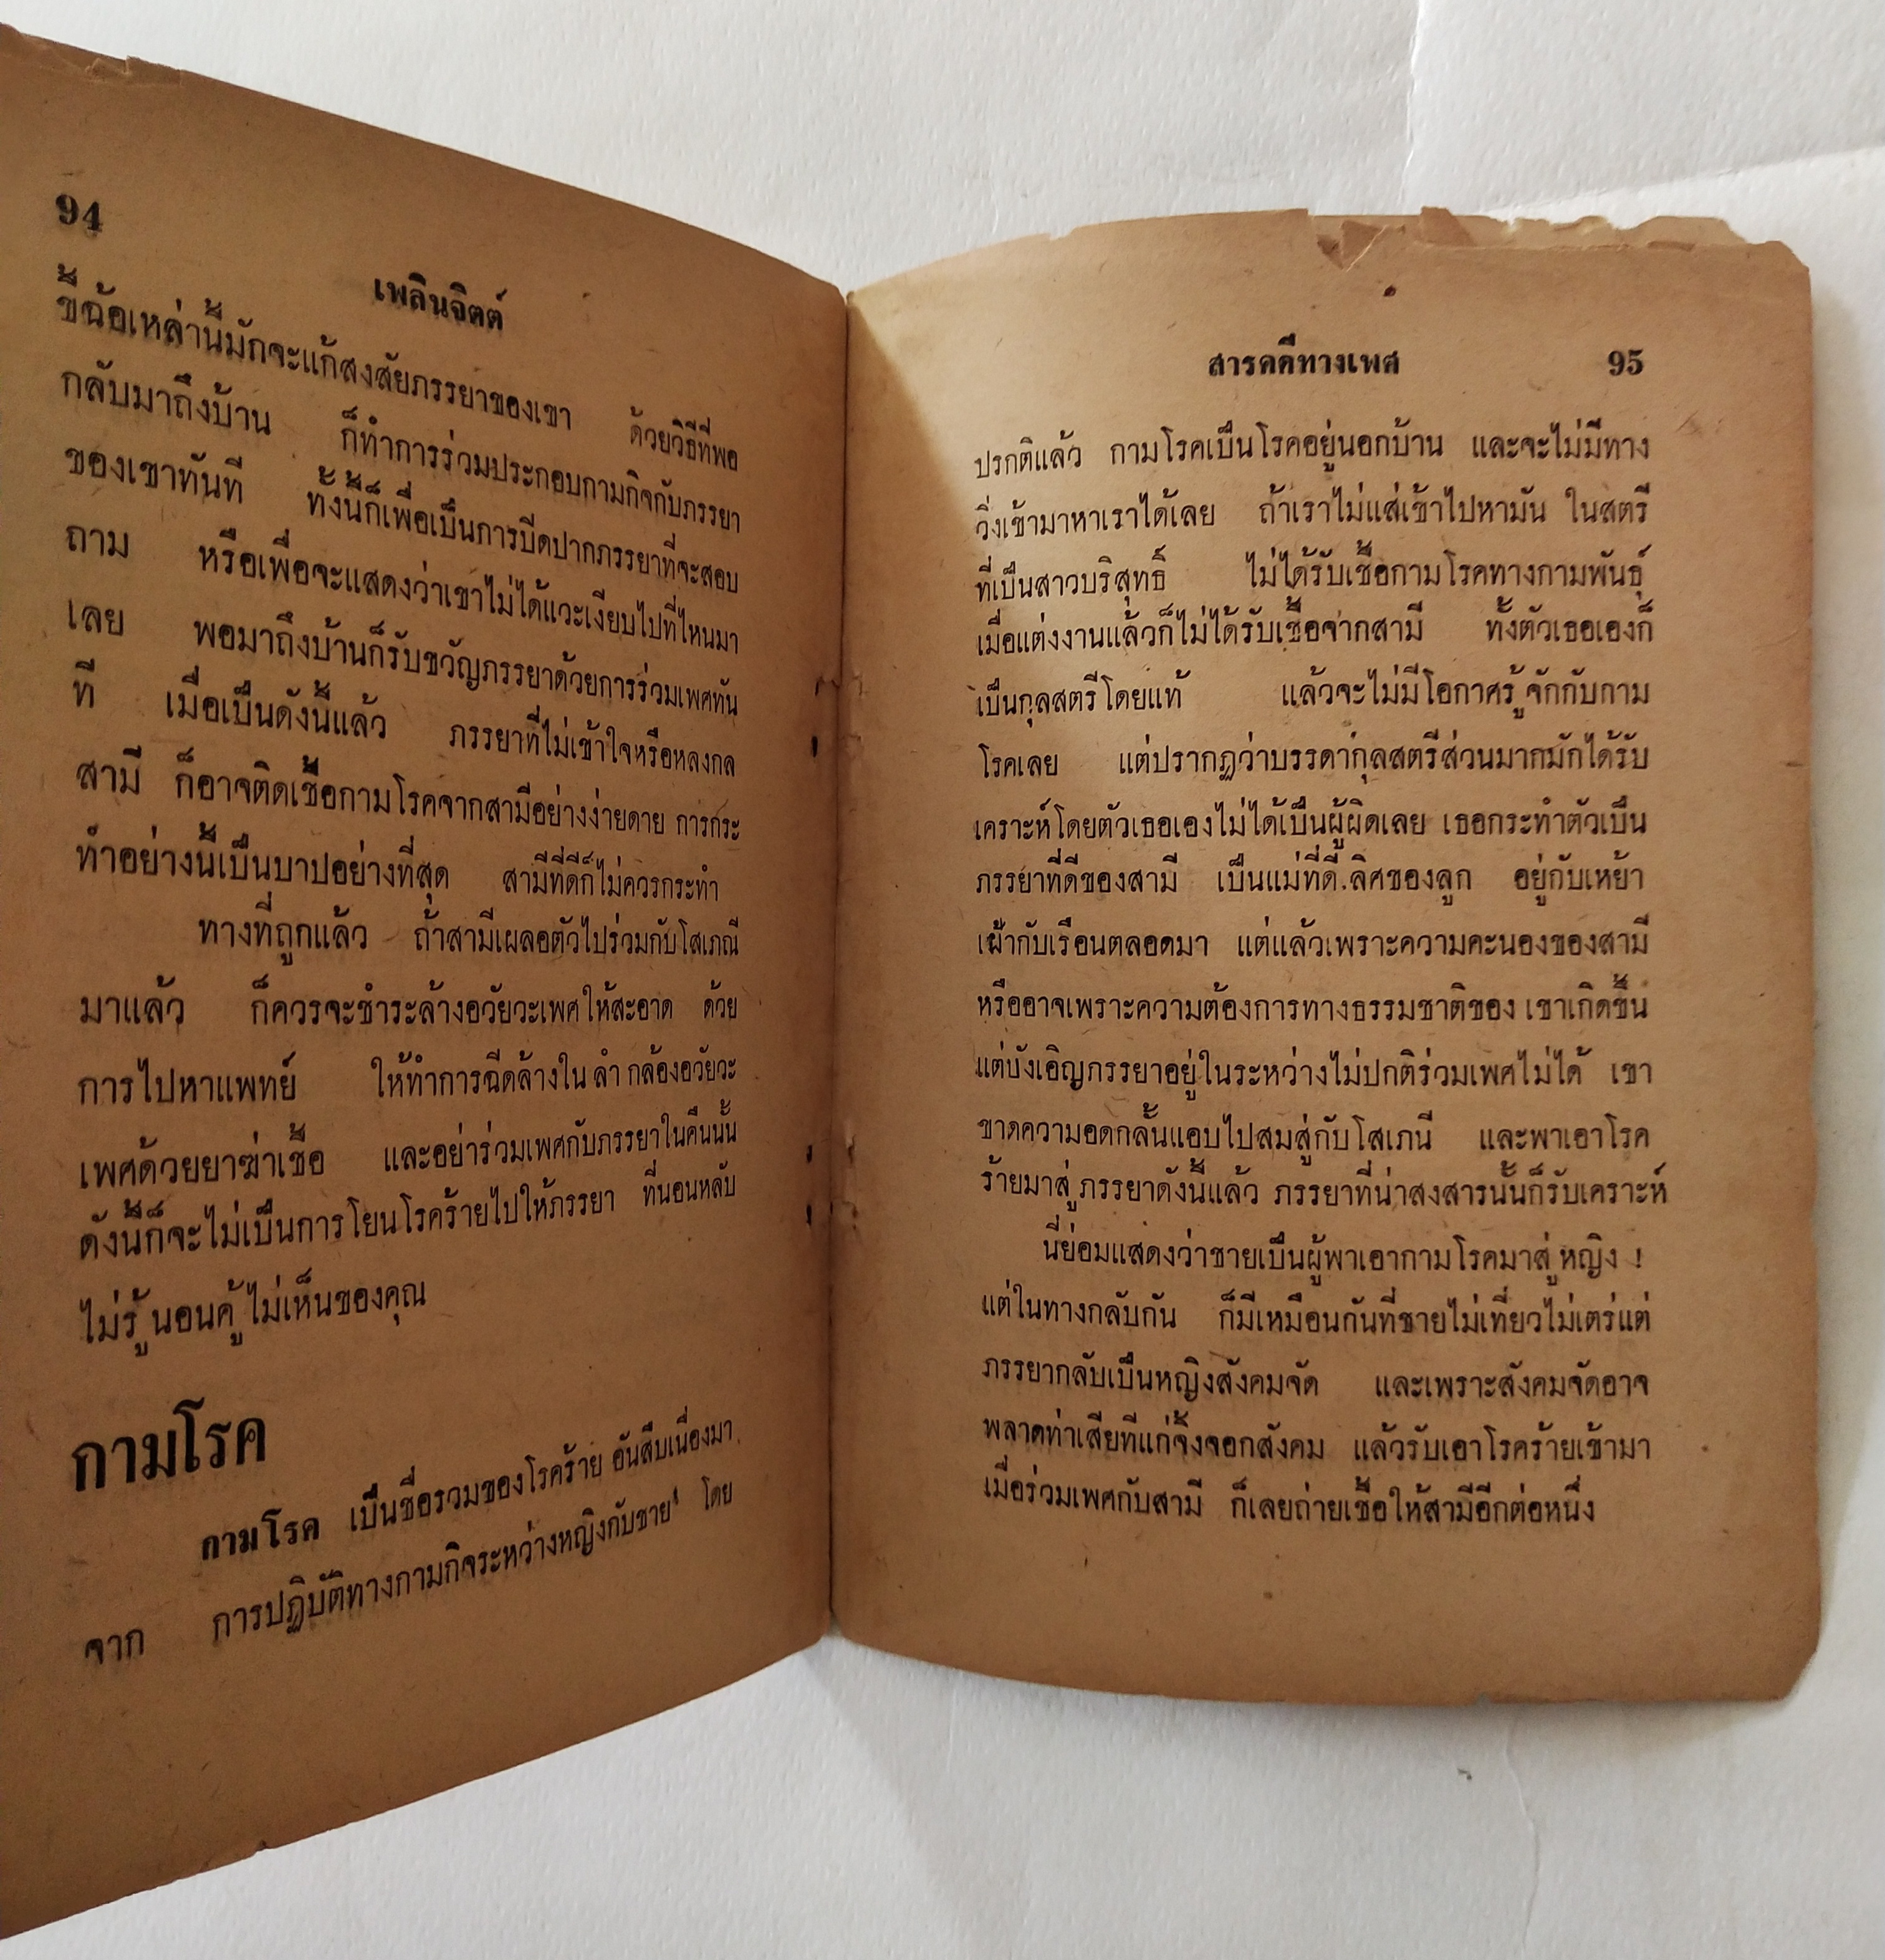 94
เพลินจิตต์
ขี้ฉ้อเหล่านี้มักจะแก้สงสัยภรรยาของเขา ด้วยวิธีที่พอ
กลับมาถึงบ้าน ก็ทำการร่วมประกอบกามกิจกับภรรยา
ของเขาทันที ทั้งนี้ก็เพื่อเป็นการปีดปากภรรยาที่จะสอบ
ถาม หรือเพื่อจะแสดงว่าเขาไม่ได้แวะเงียบไปที่ไหนมา
เลย พอมาถึงบ้านก็รับขวัญภรรยาด้วยการร่วมเพศทัน
ที เมื่อเป็นดังนี้แล้ว ภรรยาที่ไม่เข้าใจหรือหลงกล
สามี ก็อาจติดเชื้อกามโรคจากสามีอย่างง่ายดาย การกระ
ทำอย่างนี้เป็นบาปอย่างที่สุด สามีที่ดีก็ไม่ควรกระทำ
ทางที่ถูกแล้ว ถ้าสามีเผลอตัวไปร่วมกับโสเภณี
มาแล้ว ก็ควรจะชำระล้างอวัยวะเพศให้สะอาด ด้วย
การไปหาแพทย์ ให้ทำการฉีดล้างใน ลำ กล้องอวัยวะ
เพศด้วยยาฆ่าเชื้อ และอย่าร่วมเพศกับภรรยาในคืนนั้น
ดังนี้ก็จะไม่เป็นการโยนโรคร้ายไปให้ภรรยา ที่นอนหลับ
ไม่รู้ นอนคู้ ไม่เห็นของคุณ
กามโรค
กามโรค เป็นชื่อรวมของโรคร้าย อันสืบเนื่องมา
จาก การปฏิบัติทางกามกิจระหว่างหญิงกับชาย โดย
สารคดีทางเพศ 95
ปรกติแล้ว กามโรคเป็นโรคอยู่นอกบ้าน และจะไม่มีทาง
วิ่งเข้ามาหาเราได้เลย ถ้าเราไม่แส่เข้าไปหามัน ในสตรี
ที่เป็นสาวบริสุทธิ์ ไม่ได้รับเชื้อกามโรคทางกามพันธุ์
เมื่อแต่งงานแล้วก็ไม่ได้รับเชื้อจากสามี ทั้งตัวเธอเองก็
เป็นกุลสตรีโดยแท้ แล้วจะไม่มีโอกาศรู้จักกับกาม
โรคเลย แต่ปรากฏว่าบรรดากุลสตรีส่วนมากมักได้รับ
เคราะห์โดยตัวเธอเองไม่ได้เป็นผู้ผิดเลย เธอกระทำตัวเป็น
ภรรยาที่ดีของสามี เป็นแม่ที่ดี.ลิศของลูก อยู่กับเหย้า
เฝ้ากับเรือนตลอดมา แต่แล้วเพราะความคะนองของสามี
หรืออาจเพราะความต้องการทางธรรมชาติของ เขาเกิดขึ้น
แต่บังเอิญภรรยาอยู่ในระหว่างไม่ปกติร่วมเพศไม่ได้ เขา
ขาดความอดกลั้นแอบไปสมสู่กับโสเภนี และพาเอาโรค
ร้ายมาสู่ ภรรยาดังนี้แล้ว ภรรยาที่น่าสงสารนั้นก็รับเคราะห์
นี่ย่อมแสดงว่าชายเป็นผู้พาเอากามโรคมาสู่ หญิง !
แต่ในทางกลับกัน ก็มีเหมือนกันที่ชายไม่เที่ยวไม่เตร่แต่
ภรรยากลับเป็นหญิงสังคมจัด และเพราะสังคมจัดอาจ
พลาดท่าเสียทีแก่จิ้งจอกสังคม แล้วรับเอาโรคร้ายเข้ามา
เมื่อร่วมเพศกับสามี ก็เลยถ่ายเชื้อให้สามีอีกต่อหนึ่ง